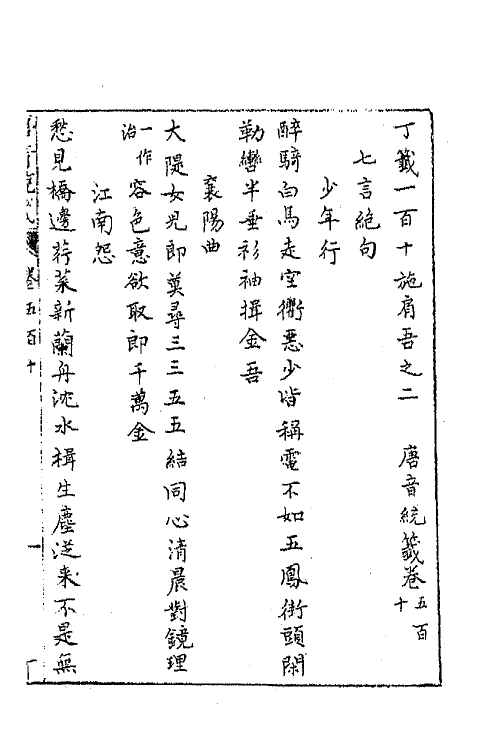 丁籤一百十施肩吾之二　唐音統籤卷五百十
七言絶句
少年行
醉騎白馬走空衢惡少皆稱電不如五鳳街頭閑
勒轡半垂衫袖揖金吾
襄陽曲
大隄女兒郎莫尋三三五五結同心清晨對鏡理
一作冶容色意欲取郎千萬金
江南怨
愁見橋邊荇葉新蘭舟沈水楫生塵從来不是無
卷五百十　一